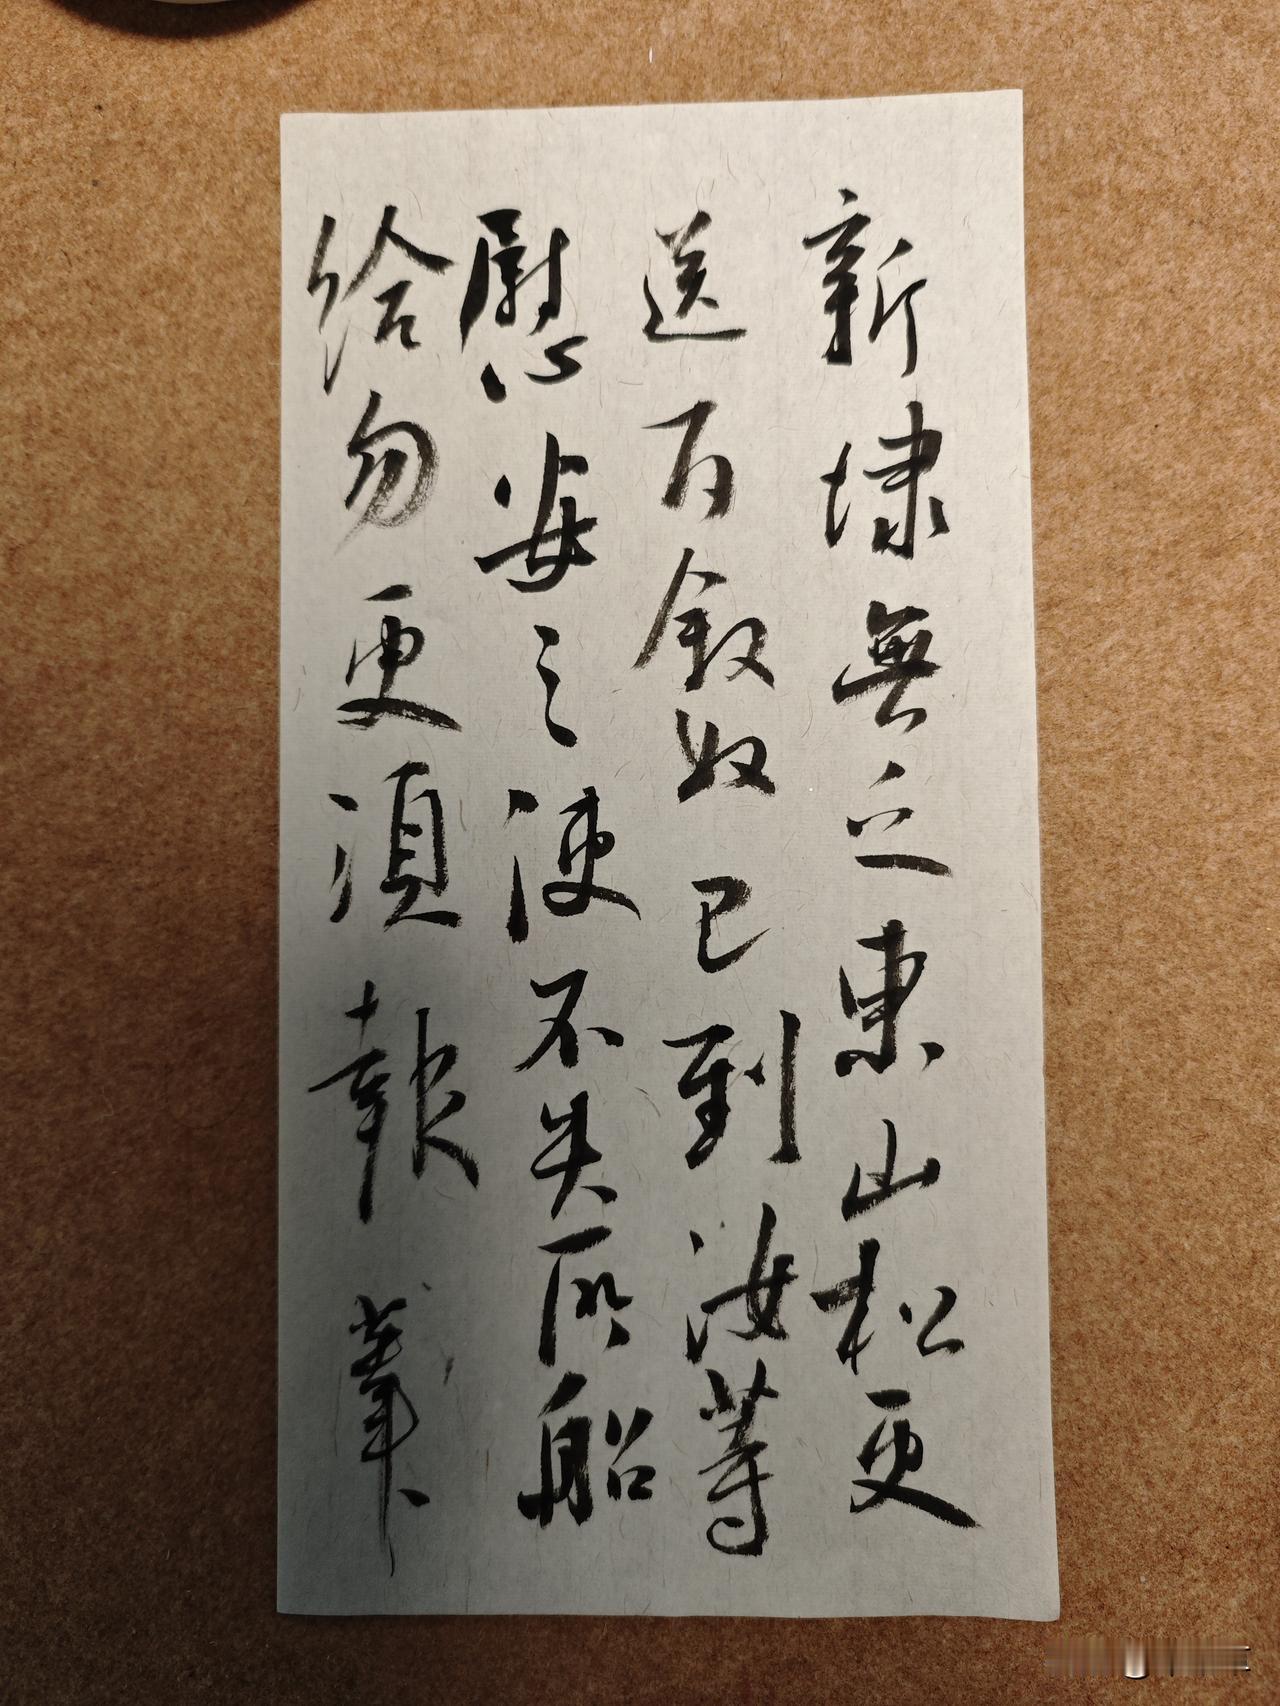 新埭無乏東山松更
送百敘奴已到汝等
慰安之使不失所船
給勿更須報